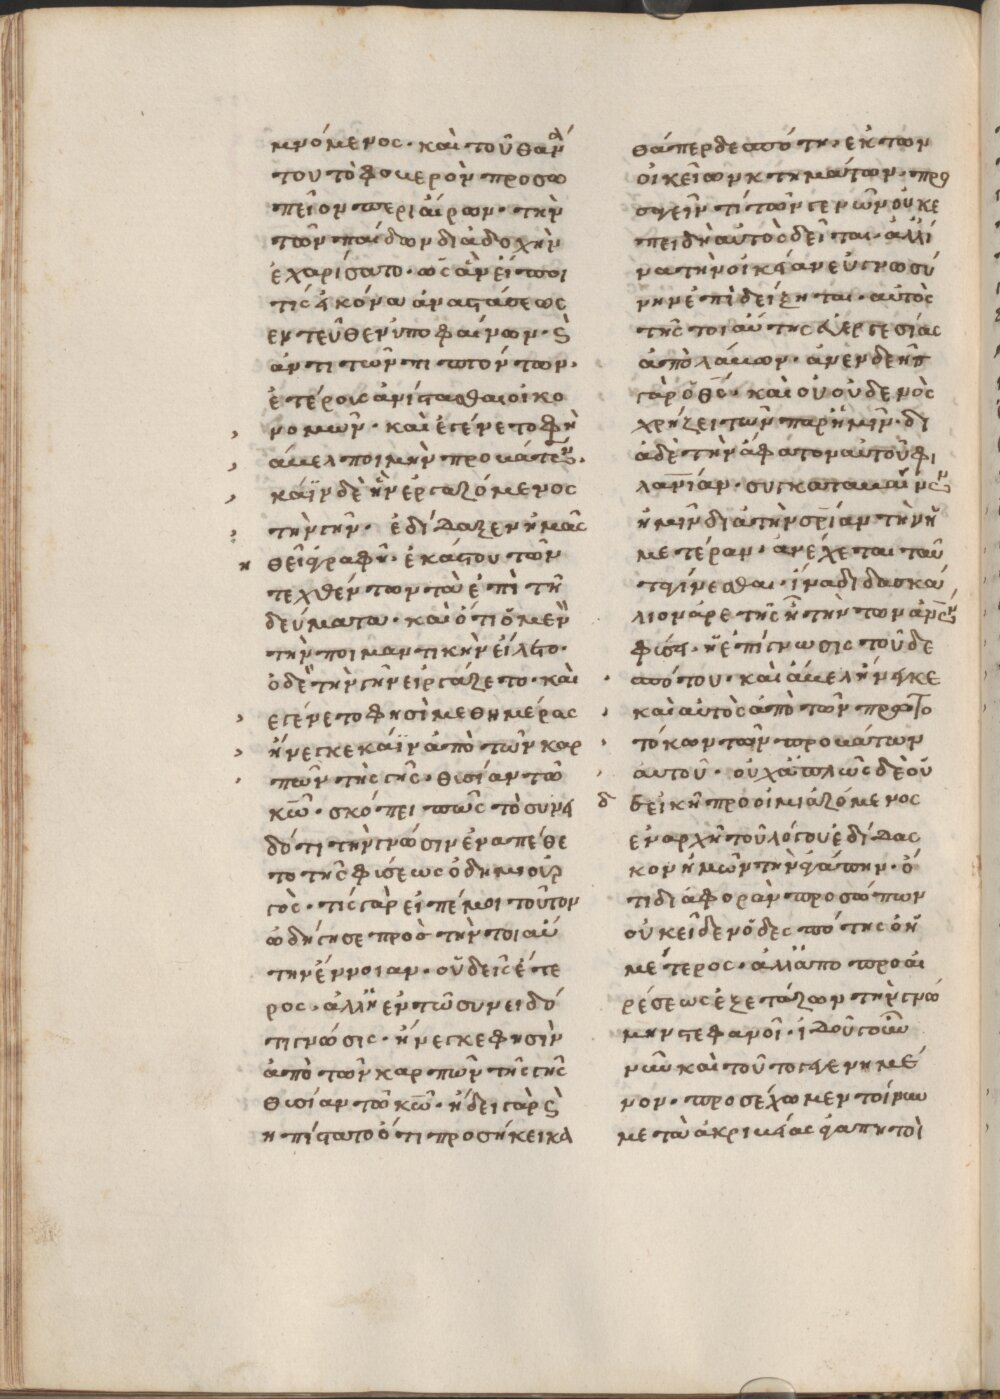 μνόμενος· καὶ τοῦ θανά
του τὸ φοβερὸν προσω
πεῖον περιαίρων· τὴν
τῶν παίδων διαδοχὴν
ἐχαρίσατο· ὡς ἂν εἴποι
τις εἰκόνα ἀναστάσεως
ἐντεῦθεν ὑποφαίνων· ϗ
ἀντὶ τῶν πιπτόντων·
ἑτέρους ἀνίστασθαι οἰκο
νομῶν· καὶ ἐγένετο φη
ἄβελ ποιμὴν προβάτων·
κάϊν δὲ ἦν ἐργαζόμενος
τὴν γῆν· ἐδίδαξεν ἡμᾶς
η θεία γραφὴ· ἑκάστου τῶν
τεχθέντων τὰ ἐπιτη
δεύματα· καὶ ὅτι ὁ μὲν
τὴν ποιμαντικὴν εἵλετο·
ὁ δὲ τὴν γῆν εἰργάζετο· καὶ
ἐγένετο φησὶ μεθημέρας
ἤνεγκε κάϊν ἀπὸ τῶν καρ
πῶν τῆς γῆς· θυσίαν τῶ
κω̅· σκόπει πῶς τὸ συνει
δότι τὴν γνῶσιν ἐναπέθε
το τῆς φύσεως ὁ δημιουρ
γός· τίς γὰρ εἰπέ μοι τοῦτον
ὡδήγησε πρὸς τὴν τοιαύ
την ἔννοιαν· οὐδεὶς ἕτε
ρος· ἀλλἡ ἐν τῶ συνειδό
τι γνῶσις· ἤνεγκε φησὶν
ἀπὸ τῶν καρπῶν τῆς γῆς
θυσίαν τῶ κω̅· ἤδει γὰρ ϗ
ἠπίστατο ὅτι προσήκει κα
θάπερ δεσπότη· ἐκ τῶν
οἰκείων κτημάτων· προ
σαγεῖν τί τῶν γεννῶν οὐκ ἐ
πειδὴ αὐτὸς δεῖται· ἀλλί
να τὴν οἰκείαν εὐγνωσύ
νην ἐπιδείξηται· αὐτὸς
τῆς τοιαύτης εὐεργεσίας
ἀπολάβων· ἀνενδεὴς
γὰρ ὁ θς̅· καὶ οὐ οὐδενὸς
χρήζει τῶν παρἡμῖν· δι
ὰ δὲ τὴν ἄφατον αὐτοῦ φι
λανίαν· συγκαταβαίνων
ἡμῖν διὰ τὴν σρίαν τὴν ἡ
μετέραν· ἀνέχεται ταῦ
τα γίνεσθαι· ἵνα διδασκα
λιον ἀρετῆς ῇ τὴν τῶν ἀνων
φύσει· ἡ ἐπίγνωσις τοῦ δε
σπότου· καὶ ἄβελ ἤνεγκε
καὶ αὐτὸς ἀπὸ τῶν πρωτο
τόκων τῶν προβάτων
αυτοῦ· οὐχἁπλῶς δὲ οὐ
δ δεἰκῆ προοιμιαζόμενος
ἐν ἀρχῆ τοῦ λόγου ἐδίδας
κον ἡμῶν τὴν ἀγάπην· ὅ
τι διαφορὰν προσώπων
οὐκ εἶδεν ὁ δεσπότης ὁ ἡ
μέτερος· ἀλλἀπο προαι
ρέσεως ἐξετάζων τὴν γνώ
μην στεφανοῖ· ἰδοὺ γοῦν
νῦν καὶ τοῦτο γεγενημέ
νον· προσέχωμεν τοίνυν
μετὰ ἀκριβείας ἀγαπητοὶ